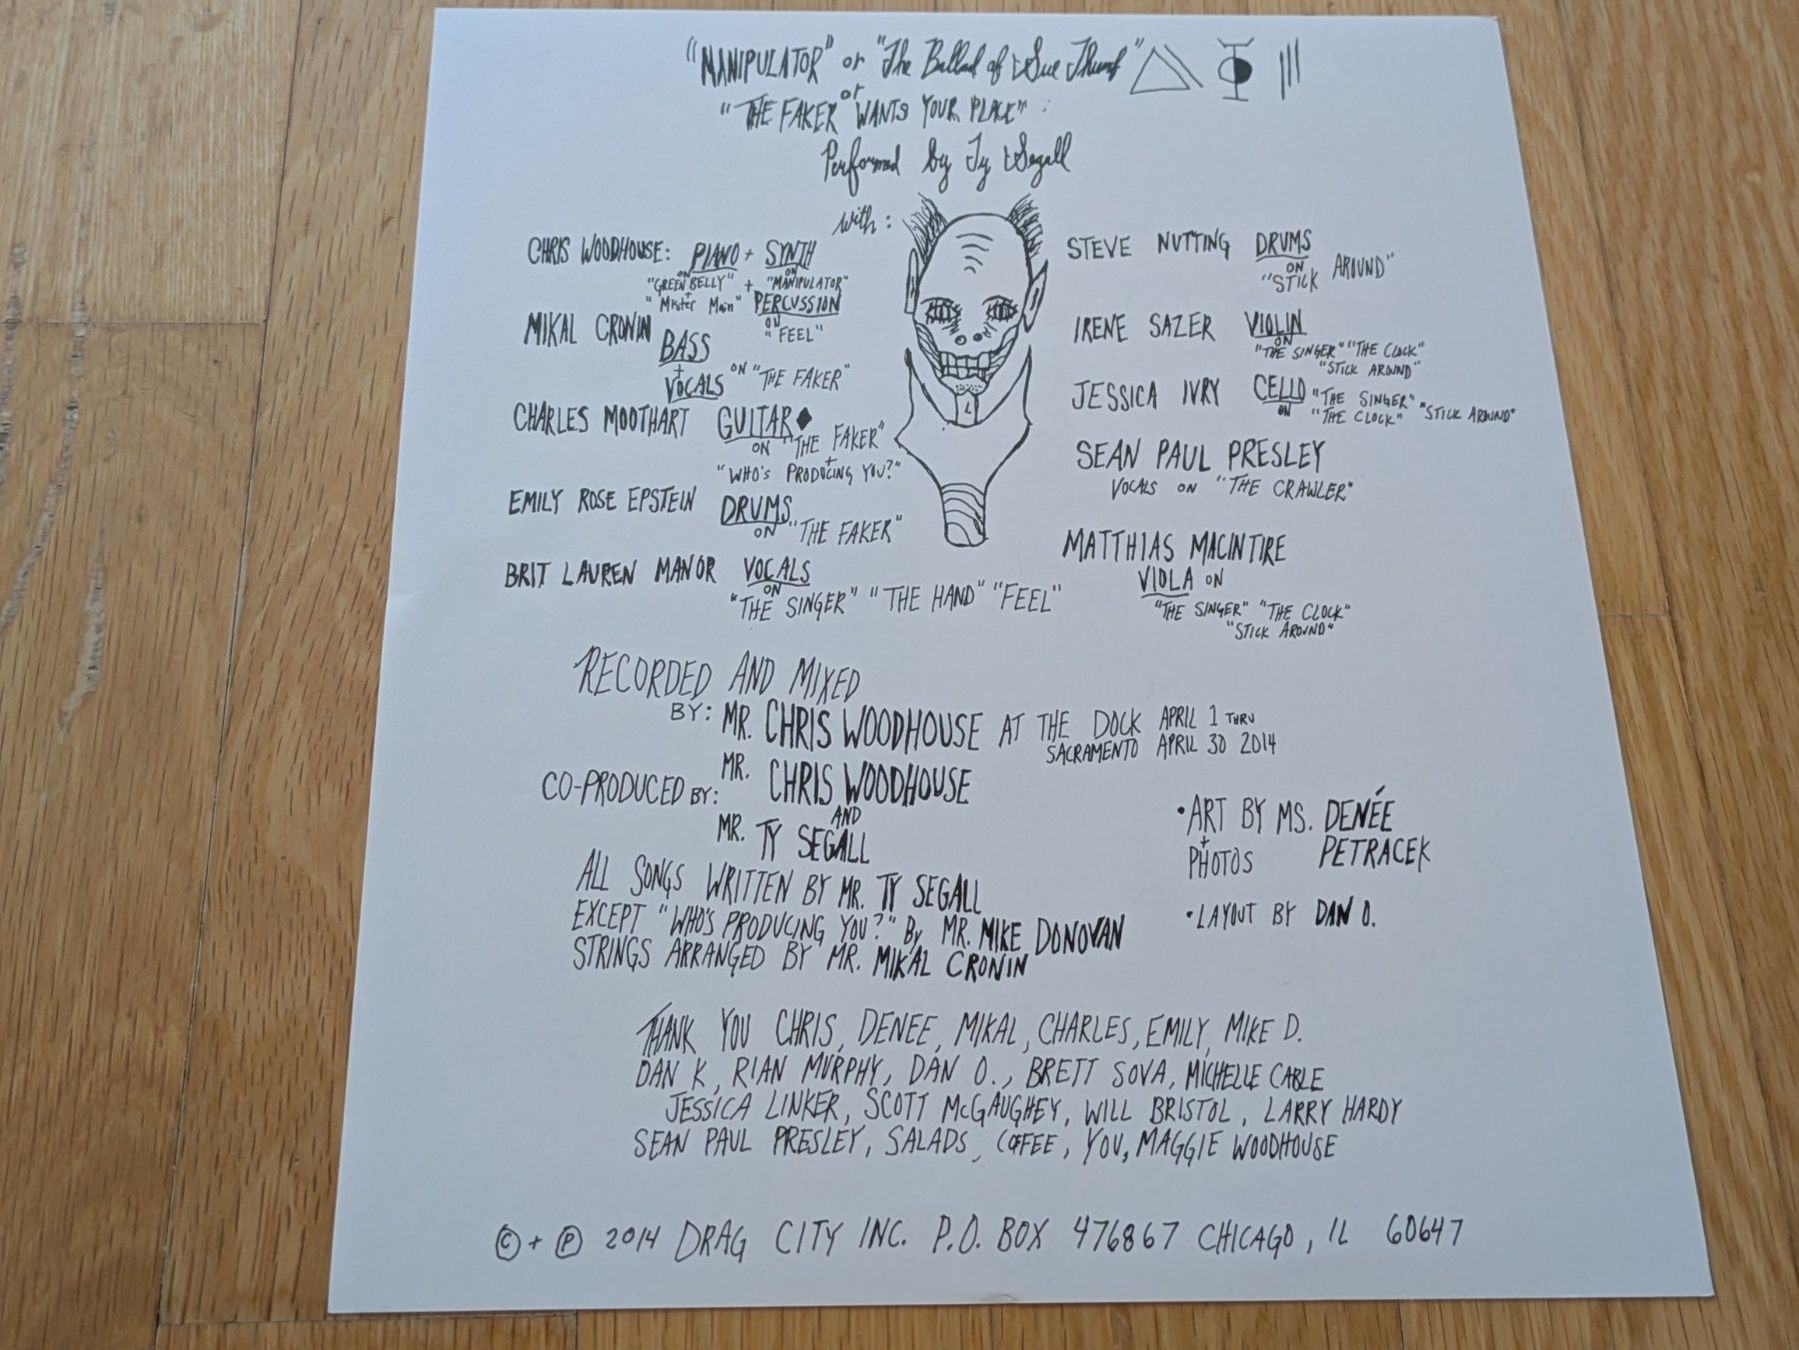 "MANIPULATOR" or "The Ballad of Sue Thumb"
or
"THE FAKER WANTS YOUR PLACE" :
Performed by Ty Segall
with:
CHRIS WOODHOUSE: PIANO + SYNTH
ON ON
"GREEN BELLY" + "MANIPULATOR"
+
"Mister Main" PERCUSSION
ON
"FEEL"
MIKAL CRONIN BASS
+
VOCALS ON "THE FAKER"
CHARLES MOOTHART GUITAR
ON "THE FAKER"
+
"WHO'S PRODUCING YOU?"
EMILY ROSE EPSTEIN DRUMS
ON "THE FAKER"
BRIT LAUREN MANOR VOCALS
ON
"THE SINGER" "THE HAND" "FEEL"
STEVE NUTTING DRUMS
ON
"STICK AROUND"
IRENE SAZER VIOLIN
ON
"THE SINGER" "THE CLOCK"
"STICK AROUND"
JESSICA IVRY CELLO "THE SINGER"
ON "THE CLOCK" "STICK AROUND"
SEAN PAUL PRESLEY
VOCALS ON "THE CRAWLER"
MATTHIAS MACINTIRE
VIOLA ON
"THE SINGER" "THE CLOCK"
"STICK AROUND"
RECORDED AND MIXED
BY: MR. CHRIS WOODHOUSE AT THE DOCK APRIL 1 THRU
SACRAMENTO APRIL 30 2014
CO-PRODUCED BY: MR. CHRIS WOODHOUSE
AND
MR. TY SEGALL
ALL SONGS WRITTEN BY MR. TY SEGALL
EXCEPT "WHO'S PRODUCING YOU?" By MR. MIKE DONOVAN
STRINGS ARRANGED BY MR. MIKAL CRONIN
• ART BY MS. DENÉE
+
PHOTOS PETRACEK
• LAYOUT BY DAN O.
THANK YOU CHRIS, DENEE, MIKAL, CHARLES, EMILY, MIKE D.
DAN K, RIAN MURPHY, DAN O., BRETT SOVA, MICHELLE CABLE
JESSICA LINKER, SCOTT McGAUGHEY, WILL BRISTOL, LARRY HARDY
SEAN PAUL PRESLEY, SALADS, COFFEE, YOU, MAGGIE WOODHOUSE
© + ℗ 2014 DRAG CITY INC. P.O. BOX 476867 CHICAGO, IL 60647